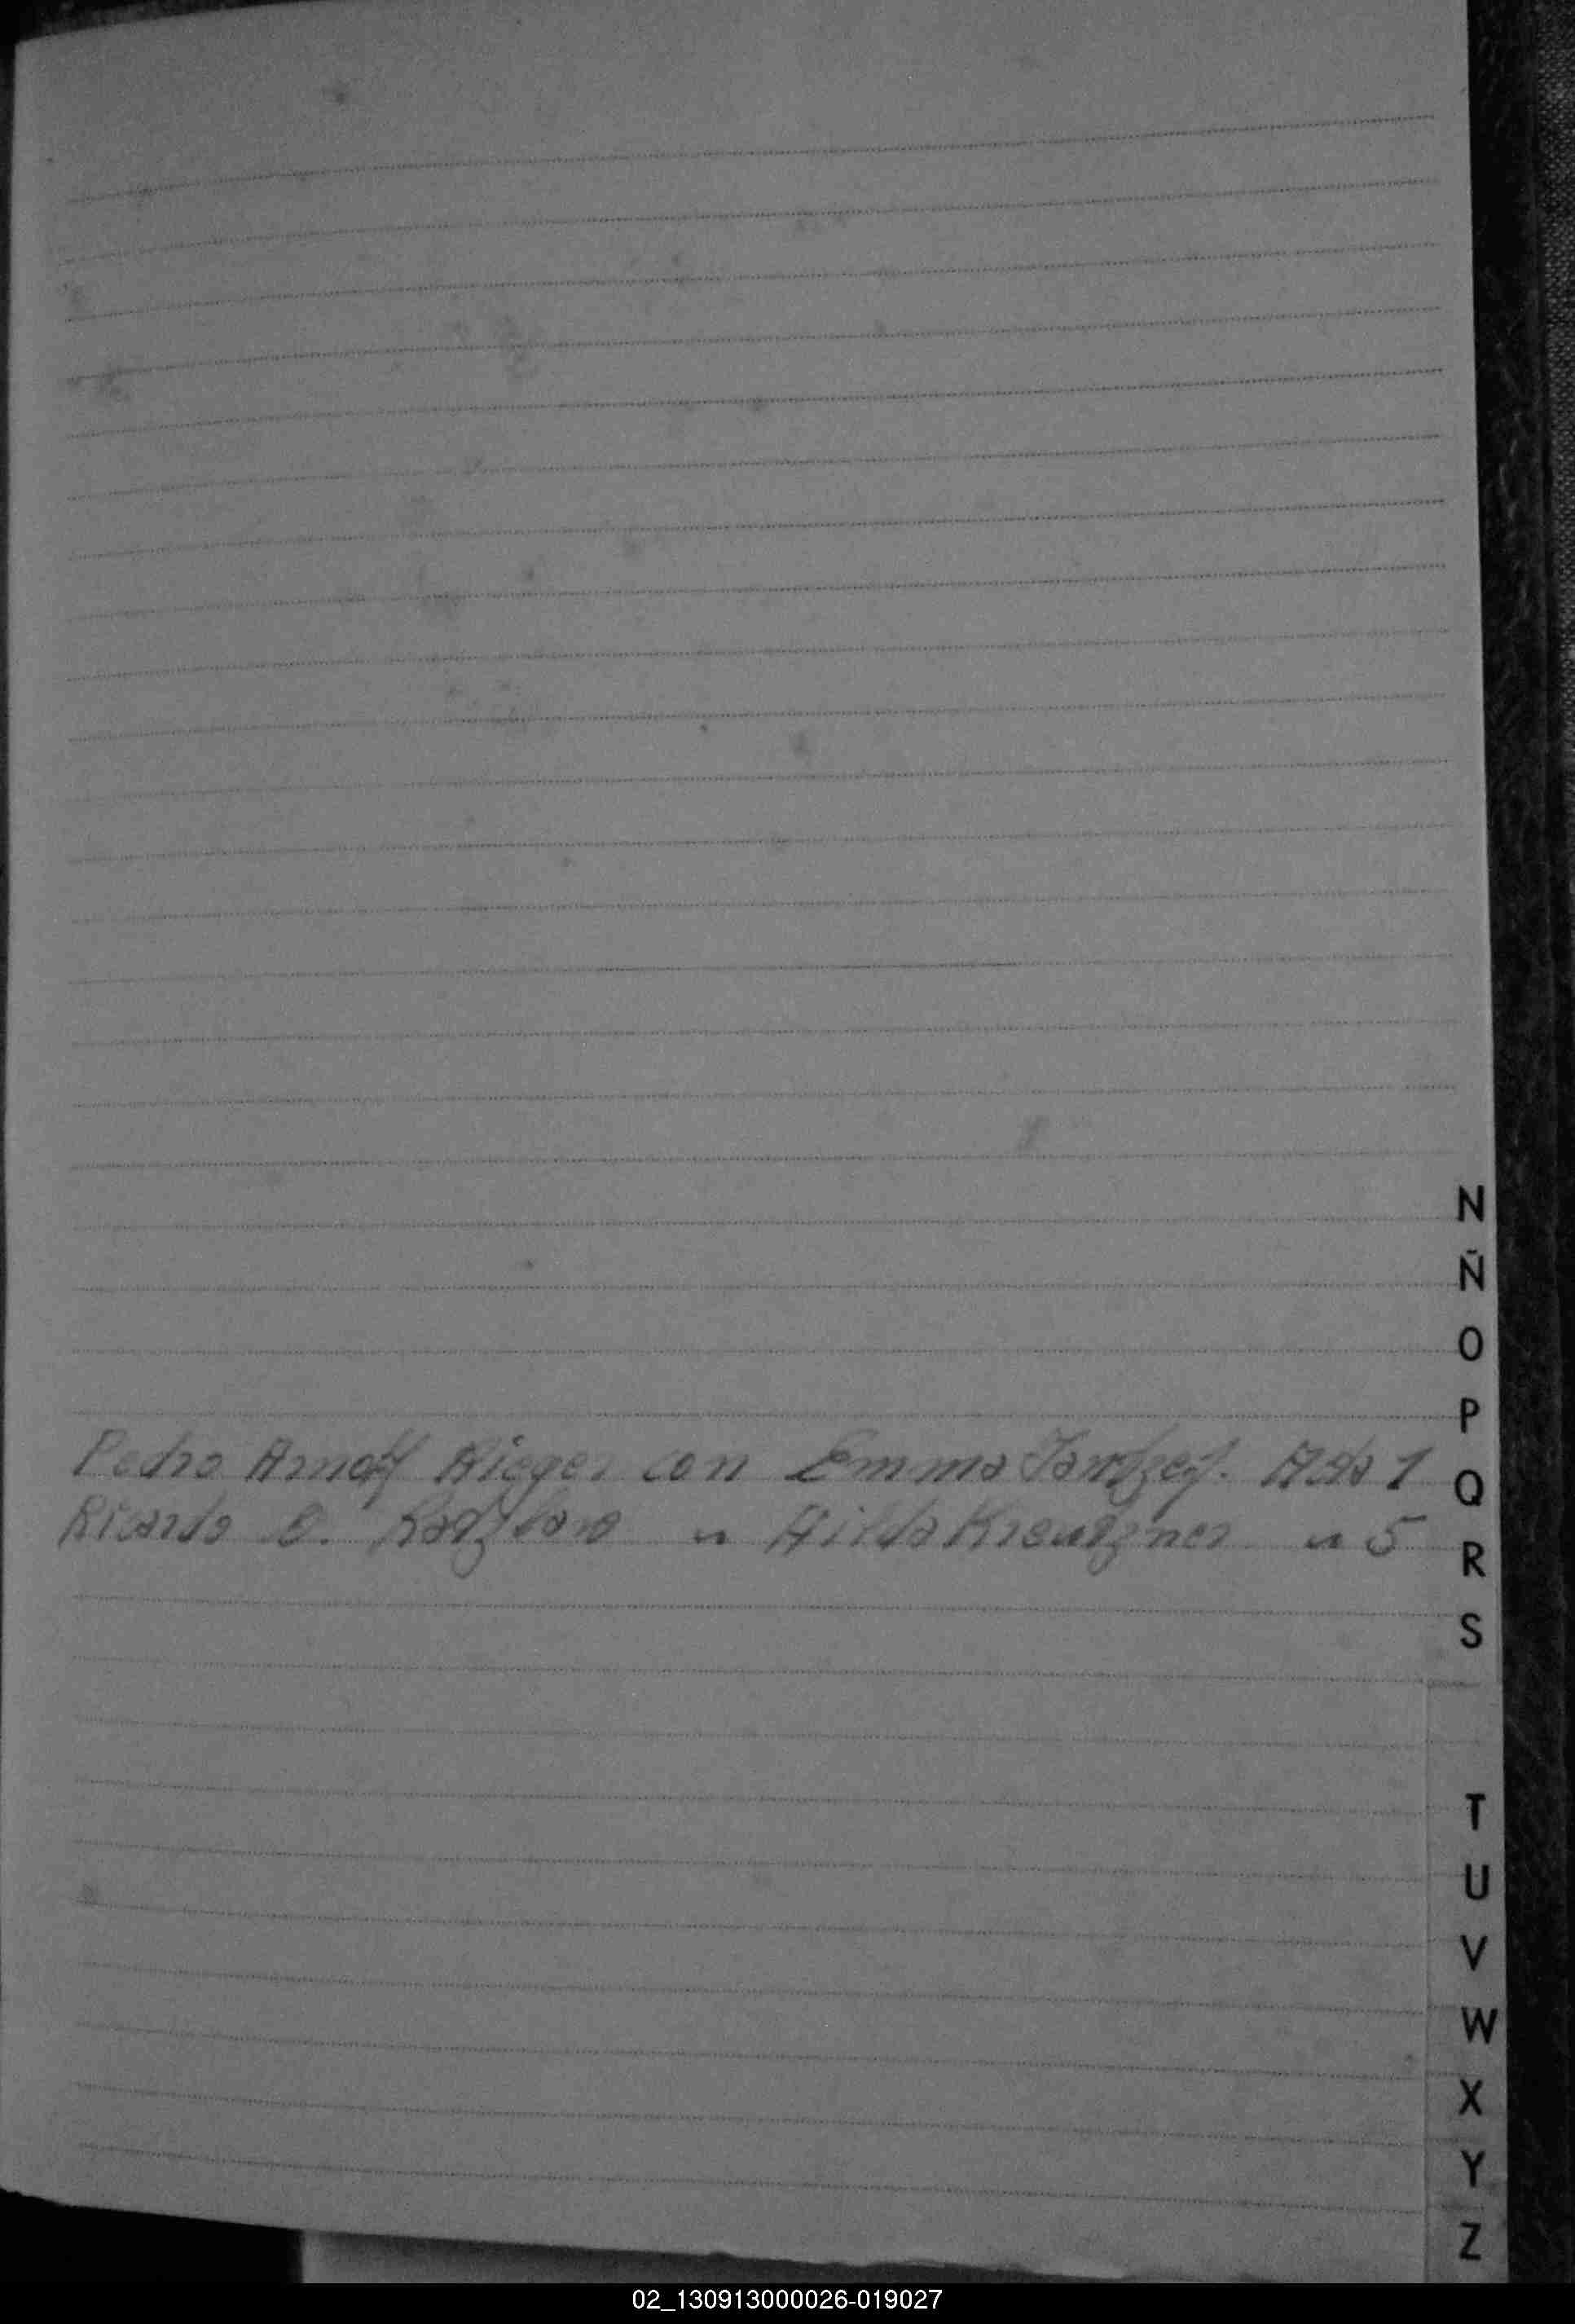 N
Ñ
O
P
Pedro Arnolf Rieger con Emma Acta 1
Q
Ricardo Hilda Kreutzner " 5
R
S
T
U
V
W
X
Y
Z
02_130913000026-019027